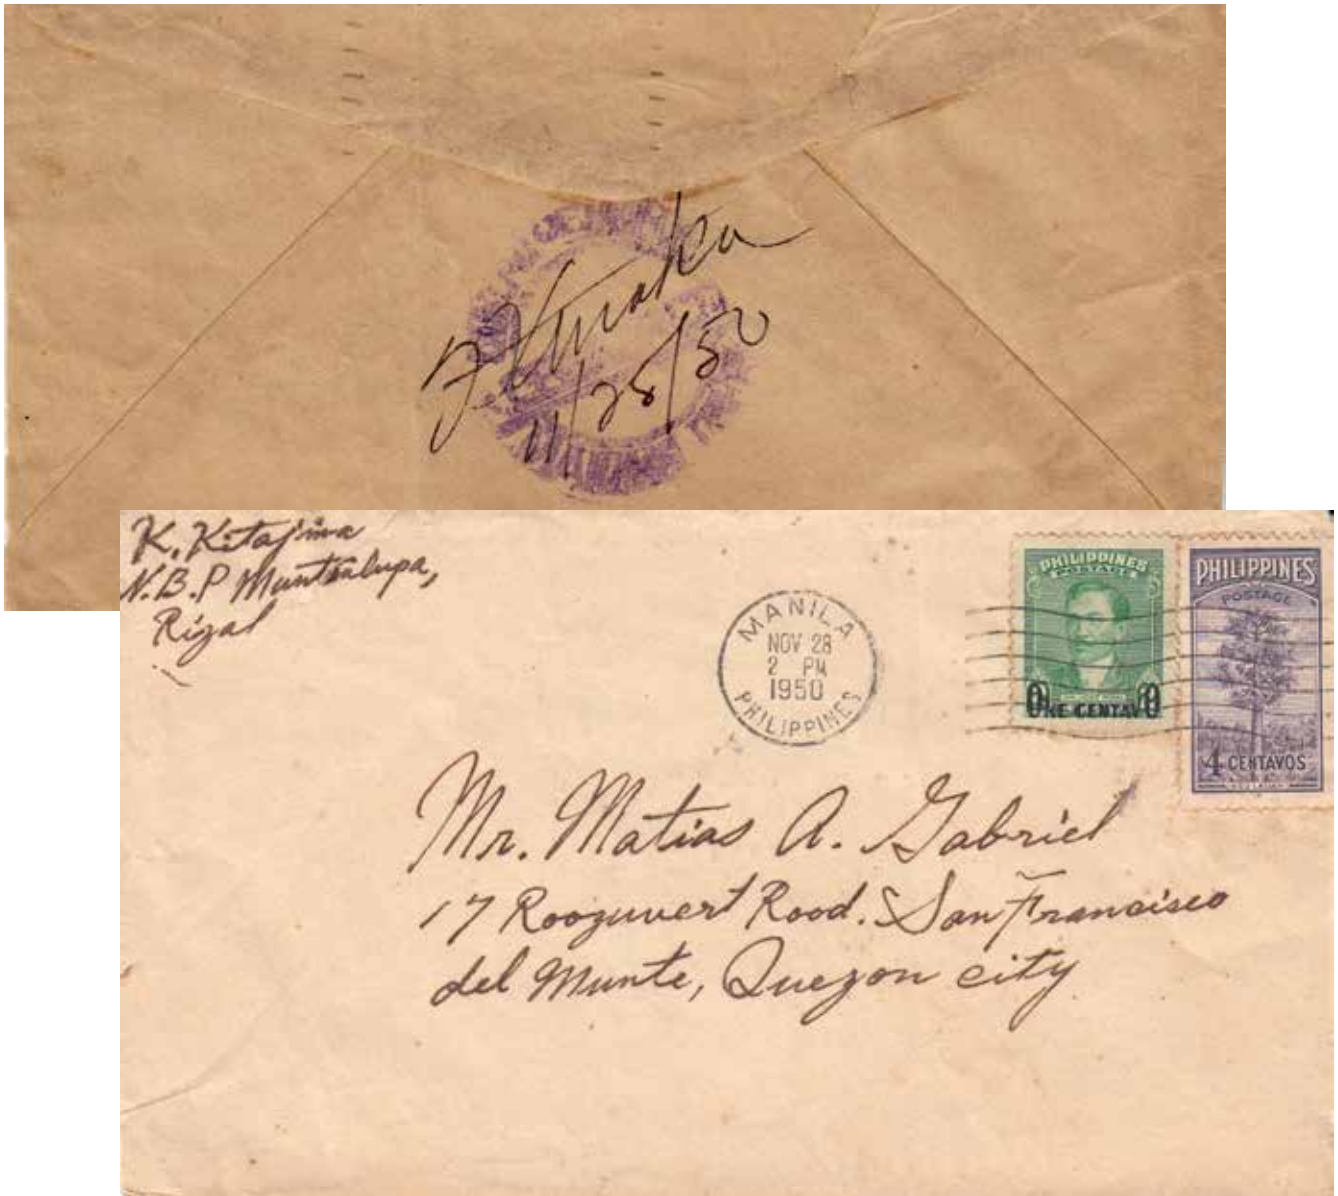 11/28/50
K. Kitajima
N.B.P Muntinlupa,
Rizal
MANILA
NOV 28
2 PM
1950
PHILIPPINES
PHILIPPINES
POSTAGE
ONE CENTAVO
PHILIPPINES
POSTAGE
4 CENTAVOS
Mr. Matias A. Gabriel
17 Roozuvert Rood. San Francisco
del Munte, Quezon city